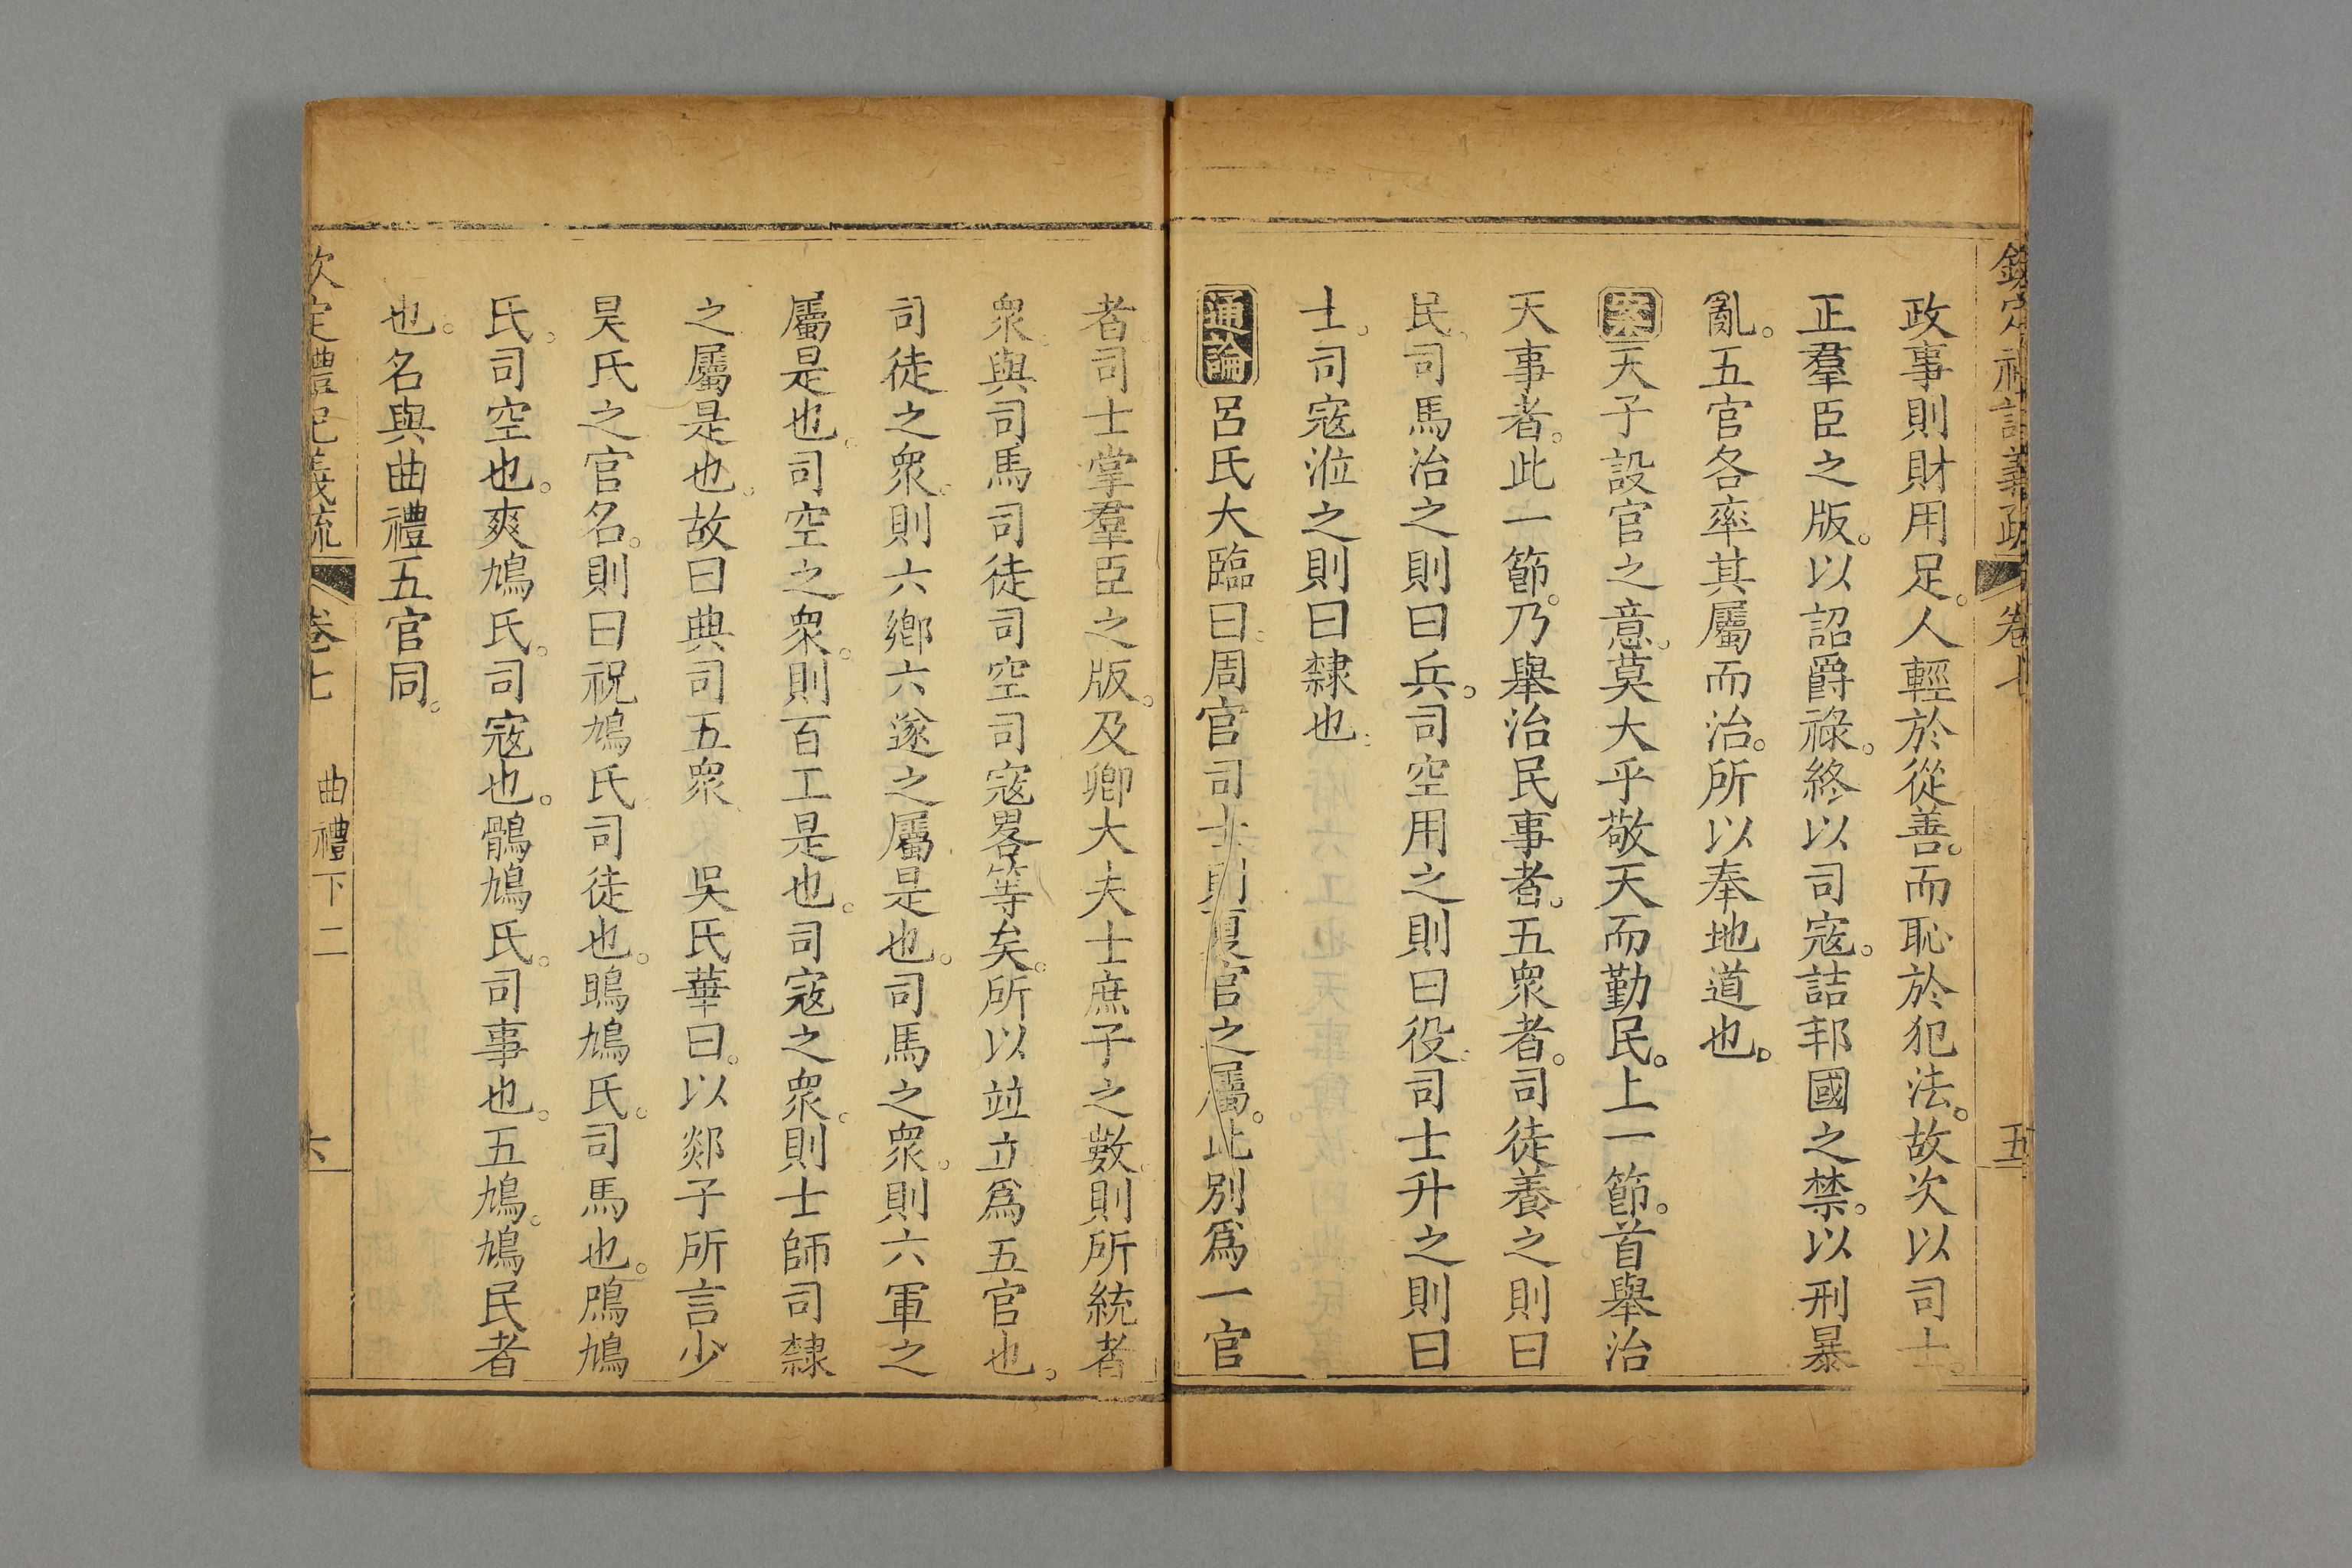 欽定禮記義疏 卷七 五
政事則財用足。人輕於從善。而恥於犯法。故次以司士。
正羣臣之版。以詔爵祿。終以司寇。詰邦國之禁。以刑暴
亂。五官各率其屬而治。所以奉地道也。
案天子設官之意。莫大乎敬天而勤民。上一節。首舉治
天事者。此一節。乃舉治民事者。五衆者。司徒養之則曰
民。司馬治之則曰兵。司空用之則曰役。司士升之則曰
士。司寇涖之則曰隸也。
通論呂氏大臨曰。周官司士則夏官之屬。此別爲一官
者。司士掌羣臣之版。及卿大夫士庶子之數。則所統者
衆。與司馬司徒司空司寇畧等矣。所以竝立爲五官也。
司徒之衆。則六鄉六遂之屬是也。司馬之衆。則六軍之
屬是也。司空之衆。則百工是也。司寇之衆。則士師司隸
之屬是也。故曰典司五衆 吳氏華曰。以郯子所言少
昊氏之官名。則曰祝鳩氏司徒也。鴡鳩氏。司馬也。鳲鳩
氏。司空也。爽鳩氏。司寇也。鶻鳩氏。司事也。五鳩。鳩民者
也。名與曲禮五官同。
欽定禮記義疏 卷七 曲禮下二 六